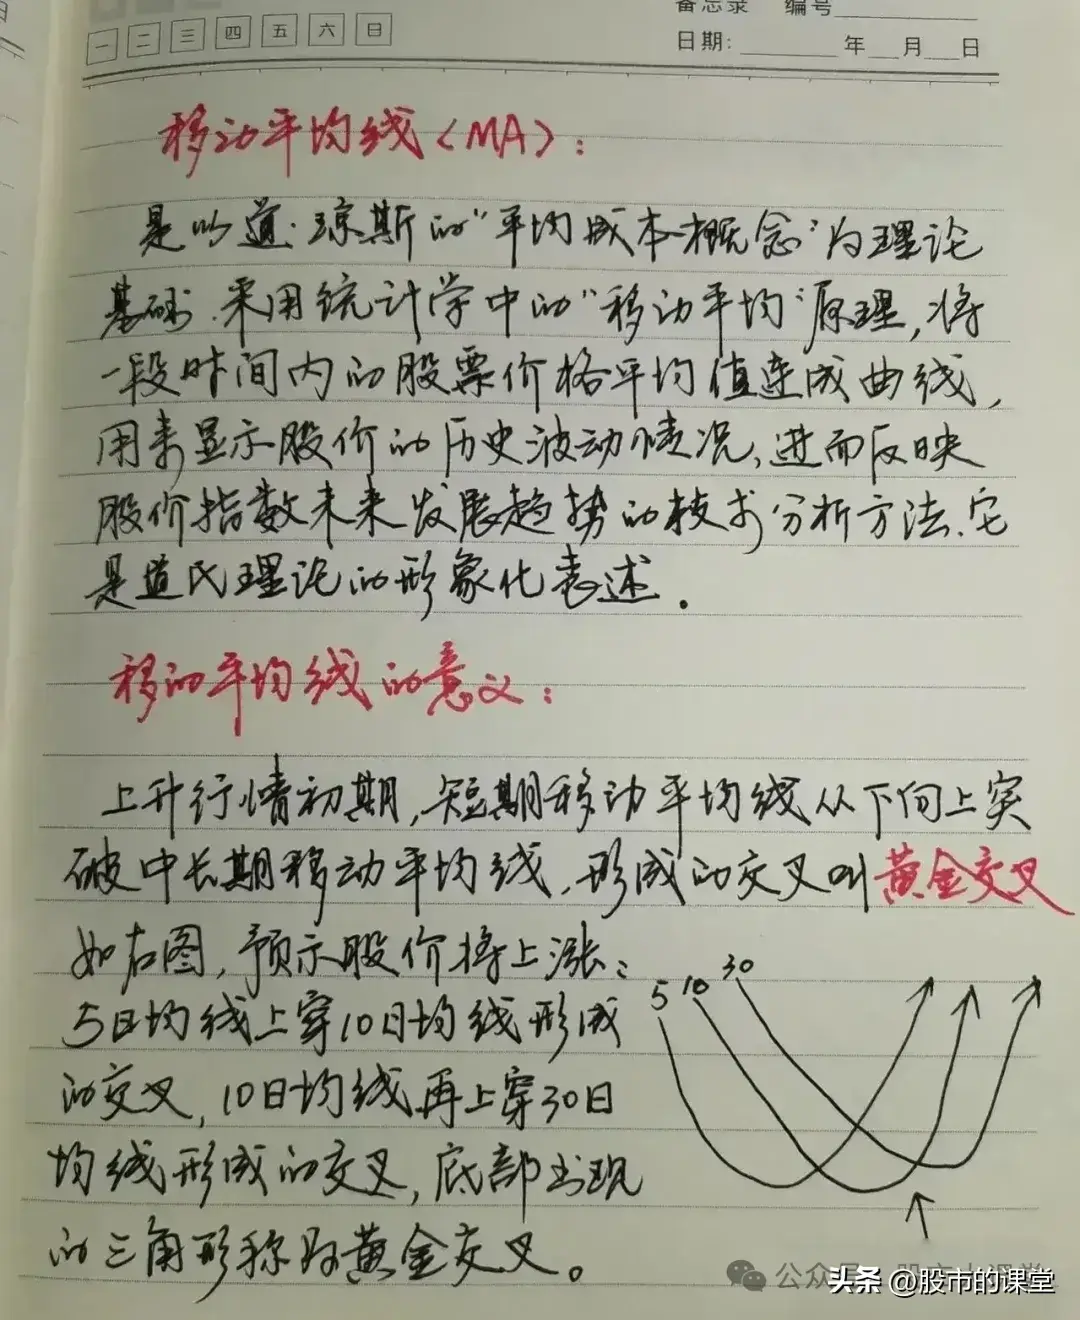 备忘录 编号
一 二 三 四 五 六 日
日期: 年 月 日
移动平均线〈MA〉:
是以道·琼斯的"平均成本概念"为理论
基础.采用统计学中的"移动平均"原理,将
一段时间内的股票价格平均值连成曲线,
用来显示股价的历史波动情况,进而反映
股价指数未来发展趋势的技术分析方法.它
是道氏理论的形象化表述.
移动平均线的意义:
上升行情初期,短期移动平均线从下向上突
破中长期移动平均线,形成的交叉叫黄金交叉
如右图,预示股价将上涨:
5 10 30
5日均线上穿10日均线形成
的交叉,10日均线再上穿30日
均线形成的交叉,底部出现
的三角形称为黄金交叉。
公众号
头条 @股市的课堂